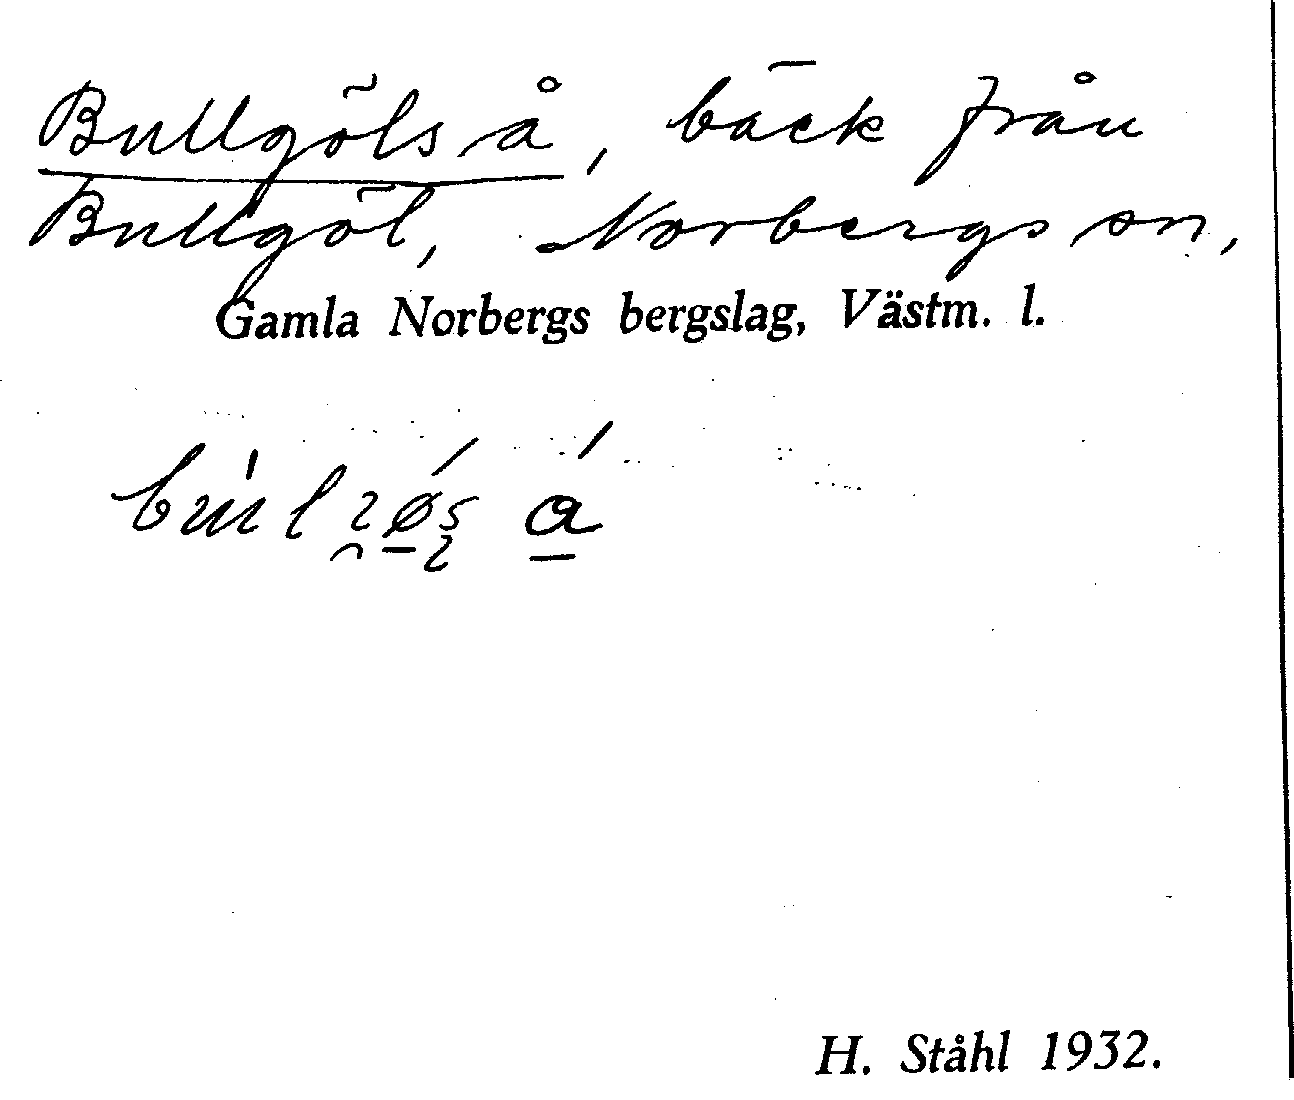 Bullgölså, bäck från
Bullgöl, Norbergs sn,
Gamla Norbergs bergslag, Västm. l.
H. Ståhl 1932.